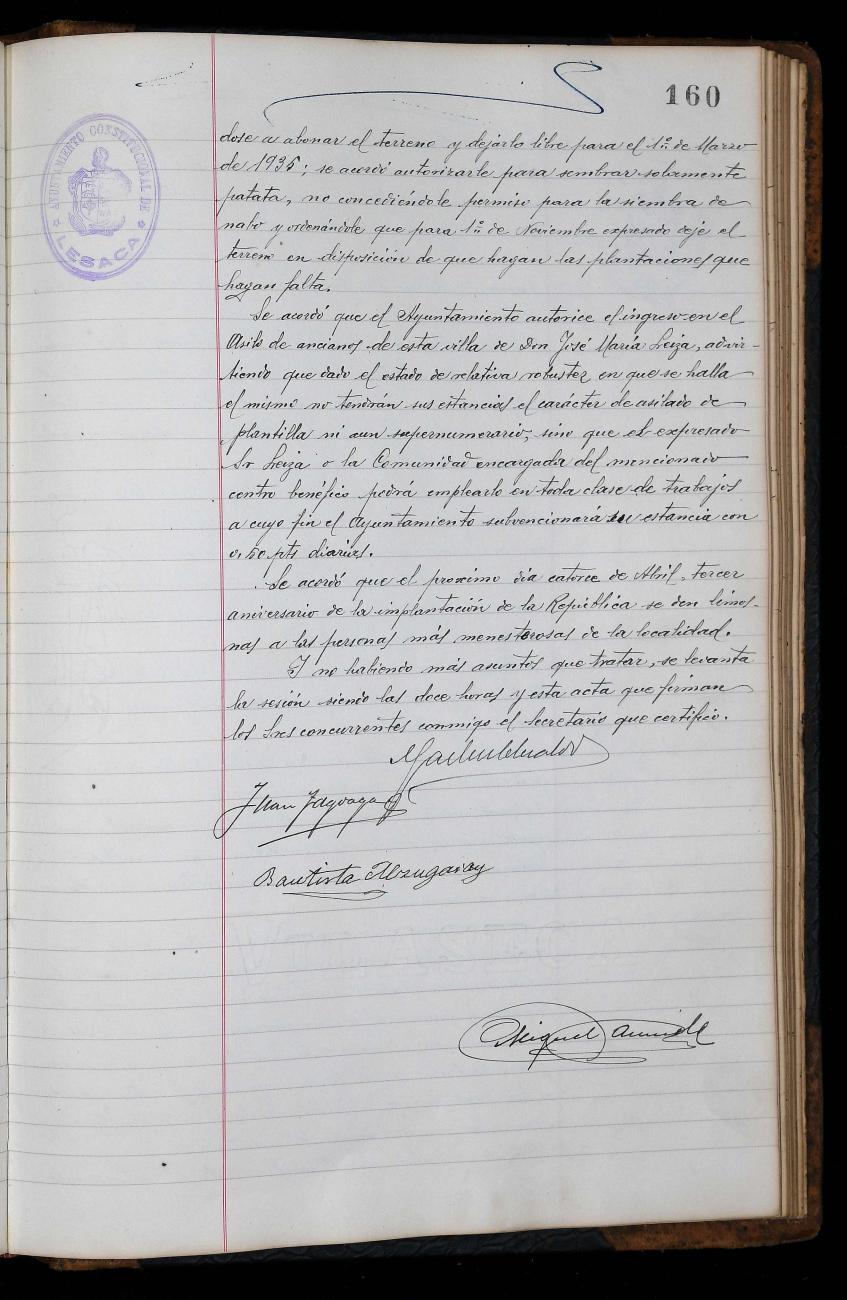 160
AYUNTAMIENTO CONSTITUCIONAL DE
LESACA
dose a abonar el terreno y dejarlo libre para el 1º de Marzo
de 1935; se acordó autorizarle para sembrar solamente
patata, no concediéndole permiso para la siembra de
nabo y ordenándole que para 1º de Noviembre expresado deje el
terreno en disposición de que hagan las plantaciones que
hagan falta.
Se acordó que el Ayuntamiento autorice el ingreso en el
Asilo de ancianos de esta villa de Don José María Leiza, advir-
tiendo que dado el estado de relativa robustez en que se halla
el mismo no tendrán sus estancias el carácter de asilado de
plantilla ni aun supernumerario, sino que el expresado
Sr Leiza o la Comunidad encargada del mencionado
centro benéfico podrá emplearlo en toda clase de trabajos
a cuyo fin el Ayuntamiento subvencionará su estancia con
0,50 pts diarias.
Se acordó que el proximo dia catorce de Abril, tercer
aniversario de la implantación de la República se den limos-
nas a las personas más menesterosas de la localidad.
Y no habiendo más asuntos que tratar, se levanta
la sesión siendo las doce horas y esta acta que firman
los Sres concurrentes conmigo el Secretario que certifico.
Juan
Bautista Alzugaray
Miguel